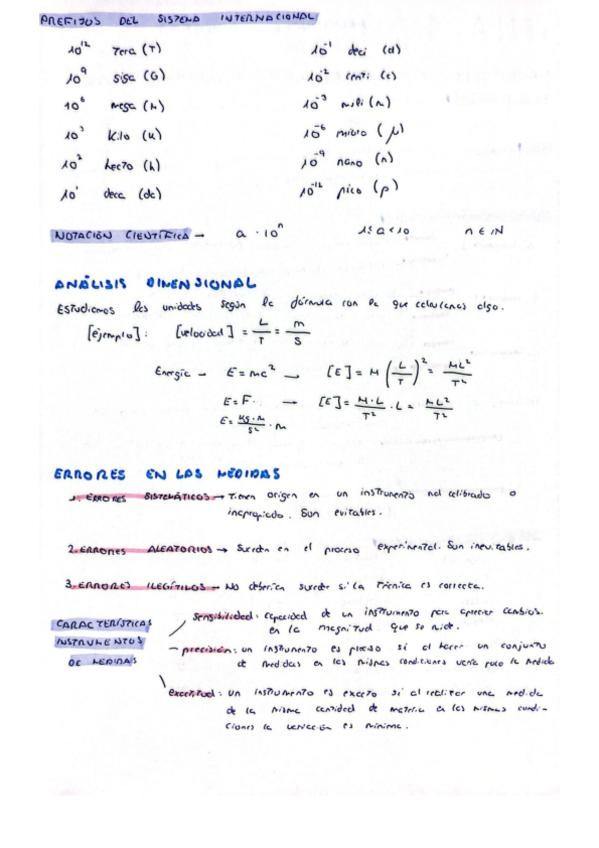 PREFIJOS DEL SISTEMA INTERNACIONAL
10¹² Tera (T)
10⁹ giga (G)
10⁶ mega (M)
10³ Kilo (K)
10² hecto (h)
10¹ deca (da)
10⁻¹ deci (d)
10⁻² centi (c)
10⁻³ mili (m)
10⁻⁶ micro (μ)
10⁻⁹ nano (n)
10⁻¹² pico (p)
NOTACIÓN CIENTÍFICA → a · 10ⁿ 1≤a<10 n ∈ ℕ
ANÁLISIS DIMENSIONAL
Estudiamos las unidades según la fórmula con la que calculamos algo.
[ejemplo]: [velocidad] = L/T = m/s
Energía → E = mc² → [E] = M (L/T)² = ML²/T²
E = F · → [E] = M·L/T² · L = ML²/T²
E = Kg·m/s² · m
ERRORES EN LAS MEDIDAS
1. ERRORES SISTEMÁTICOS → Tienen origen en un instrumento mal calibrado o
inapropiado. Son evitables.
2. ERRORES ALEATORIOS → Suceden en el proceso experimental. Son inevitables.
3. ERRORES ILEGÍTIMOS → No debería suceder si la técnica es correcta.
CARACTERÍSTICAS
INSTRUMENTOS
DE MEDIDAS
Sensibilidad: capacidad de un instrumento para apreciar cambios
en la magnitud que se mide.
precisión: un instrumento es preciso si al hacer un conjunto
de medidas en las mismas condiciones varía poco la medida
exactitud: un instrumento es exacto si al realizar una medida
de la misma cantidad de materia en las mismas condi-
ciones la variación es mínima.